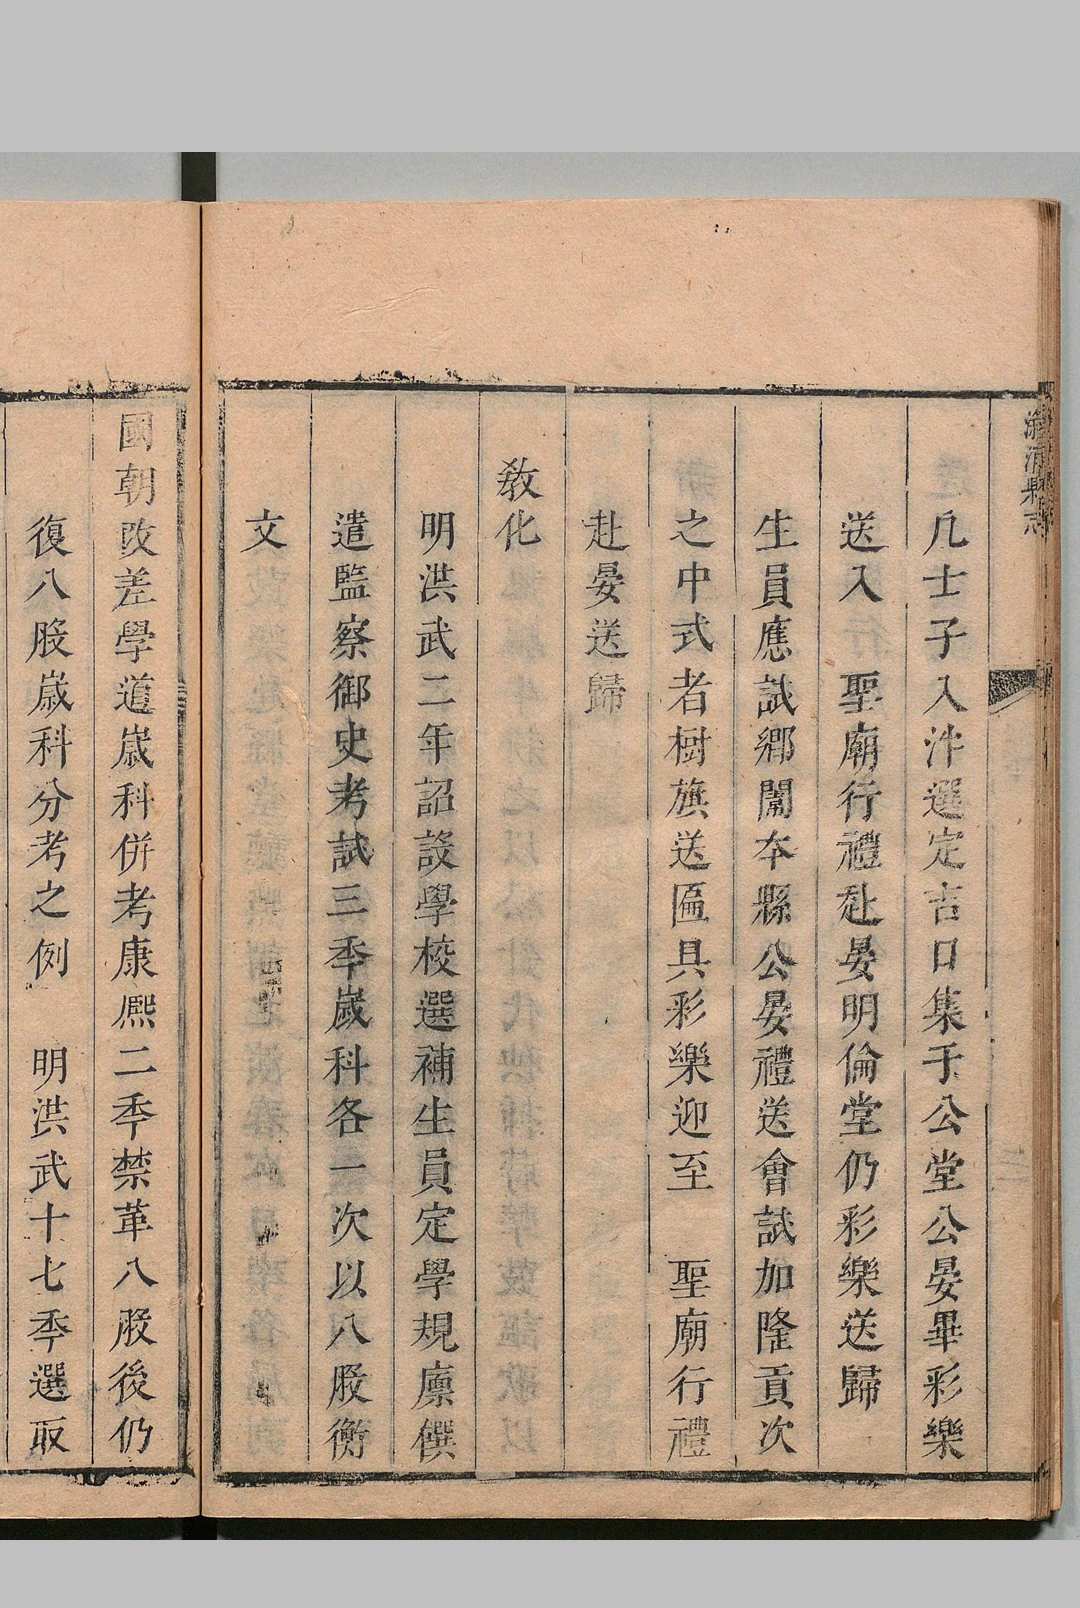 凡士子入泮選定吉日集于公堂公晏畢彩樂
送入　聖廟行禮赴晏明倫堂仍彩樂送歸
生員應試鄉闈本縣公晏禮送會試加隆貢次
之中式者樹旗送匾具彩樂迎至　聖廟行禮
赴晏送歸
教化
明洪武二年詔設學校選補生員定學規廩饌
遣監察御史考試三季歲科各一次以八股衡
文
國朝改差學道歲科併考康熙二季禁革八股後仍
復八股歲科分考之例　明洪武十七季選取